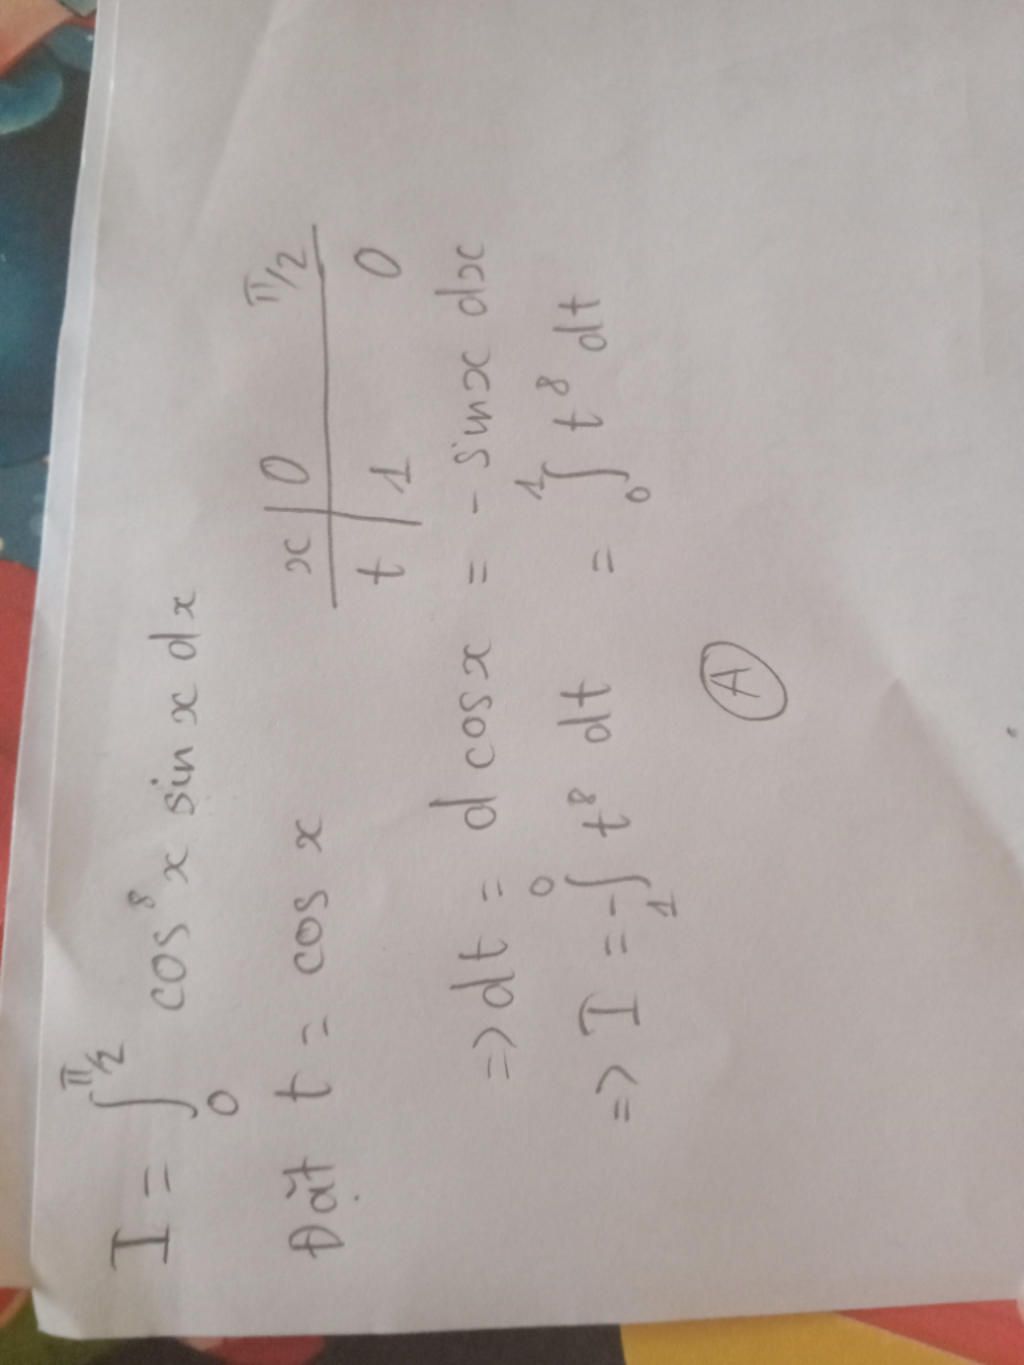 I = ∫₀^{π/2} cos⁸x sin x dx
Đặt t = cos x
x | 0 π/2
t | 1 0
=> dt = d cosx = - sinx dx
=> I = -∫₁⁰ t⁸ dt = ∫₀¹ t⁸ dt
A